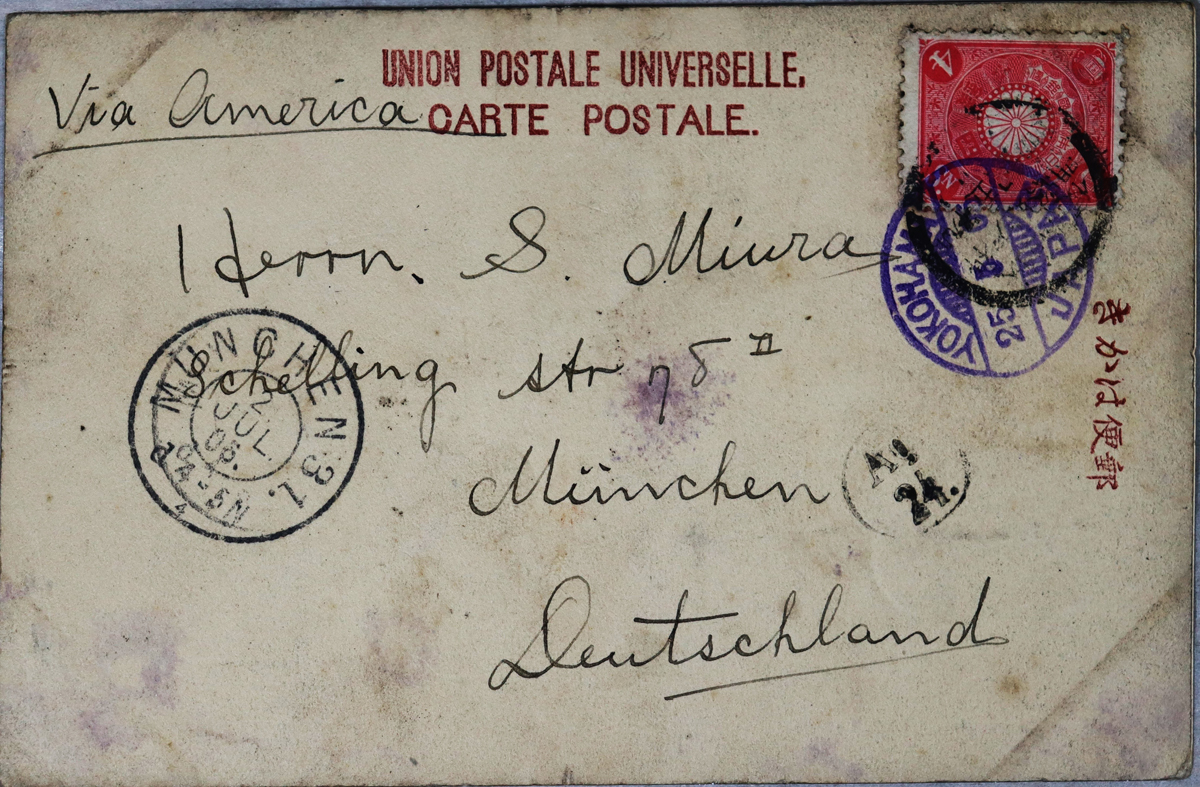 UNION POSTALE UNIVERSELLE.
CARTE POSTALE.
Via America
4
Herrn. S. Miura
YOKOHAMA
JAPAN
25
Schelling str 78 II
MÜNCHEN 31.
2
JUL
06.
München
A.
24.
Deutschland
きかは便郵